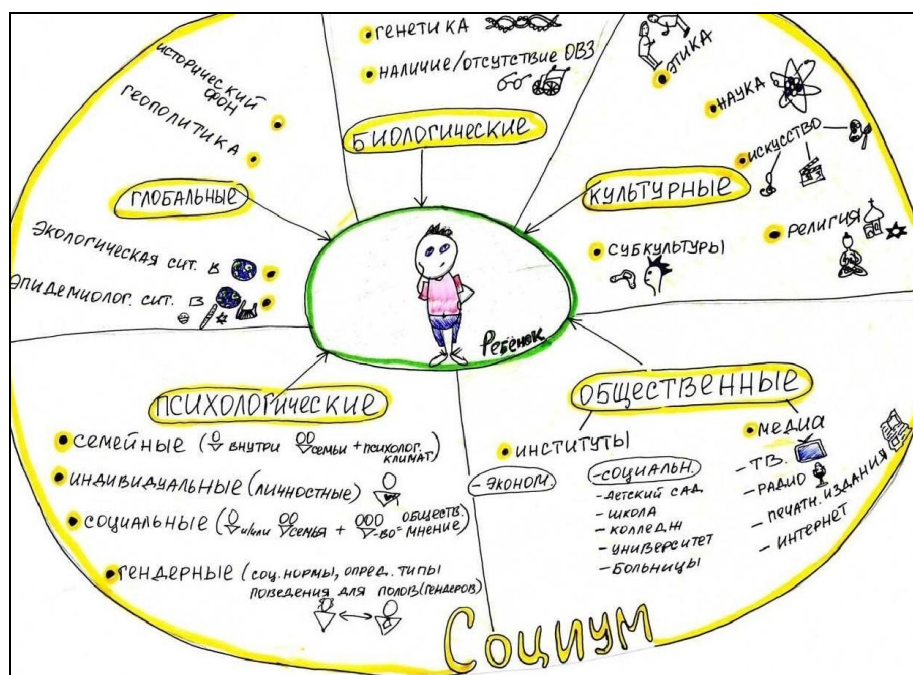 ИСТОРИЧЕСКИЙ
ФОН
ГЕОПОЛИТИКА
ГЛОБАЛЬНЫЕ
ЭКОЛОГИЧЕСКАЯ СИТ. В
ЭПИДЕМИОЛОГ. СИТ. В
ГЕНЕТИКА
НАЛИЧИЕ/ОТСУТСТВИЕ ОВЗ
БИОЛОГИЧЕСКИЕ
ЭТИКА
НАУКА
ИСКУССТВО
КУЛЬТУРНЫЕ
РЕЛИГИЯ
СУБКУЛЬТУРЫ
Ребёнок
ПСИХОЛОГИЧЕСКИЕ
СЕМЕЙНЫЕ ( ВНУТРИ СЕМЬИ + ПСИХОЛОГ.
КЛИМАТ)
ИНДИВИДУАЛЬНЫЕ (ЛИЧНОСТНЫЕ)
СОЦИАЛЬНЫЕ ( и/или СЕМЬЯ + -ВО = ОБЩЕСТВ.
МНЕНИЕ)
ГЕНДЕРНЫЕ (СОЦ. НОРМЫ, ОПРЕД. ТИПЫ
ПОВЕДЕНИЯ ДЛЯ ПОЛОВ (ГЕНДЕРОВ)
ОБЩЕСТВЕННЫЕ
ИНСТИТУТЫ
- ЭКОНОМ.
- СОЦИАЛЬН.
- ДЕТСКИЙ САД
- ШКОЛА
- КОЛЛЕДЖ
- УНИВЕРСИТЕТ
- БОЛЬНИЦЫ
МЕДИА
- ТВ.
- РАДИО
- ПЕЧАТН. ИЗДАНИЯ
- ИНТЕРНЕТ
СОЦИУМ